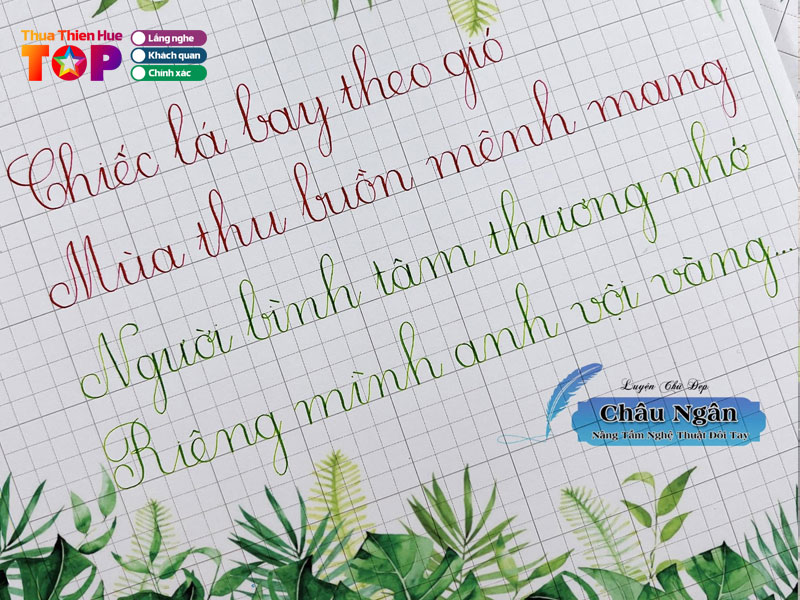 Thua Thien Hue
TOP
Lắng nghe
Khách quan
Chính xác
Chiếc lá bay theo gió
Mùa thu buồn mênh mang
Người bình tâm thương nhớ
Riêng mình anh vội vàng...
Luyện Chữ Đẹp
Châu Ngân
Nâng Tầm Nghệ Thuật Đôi Tay